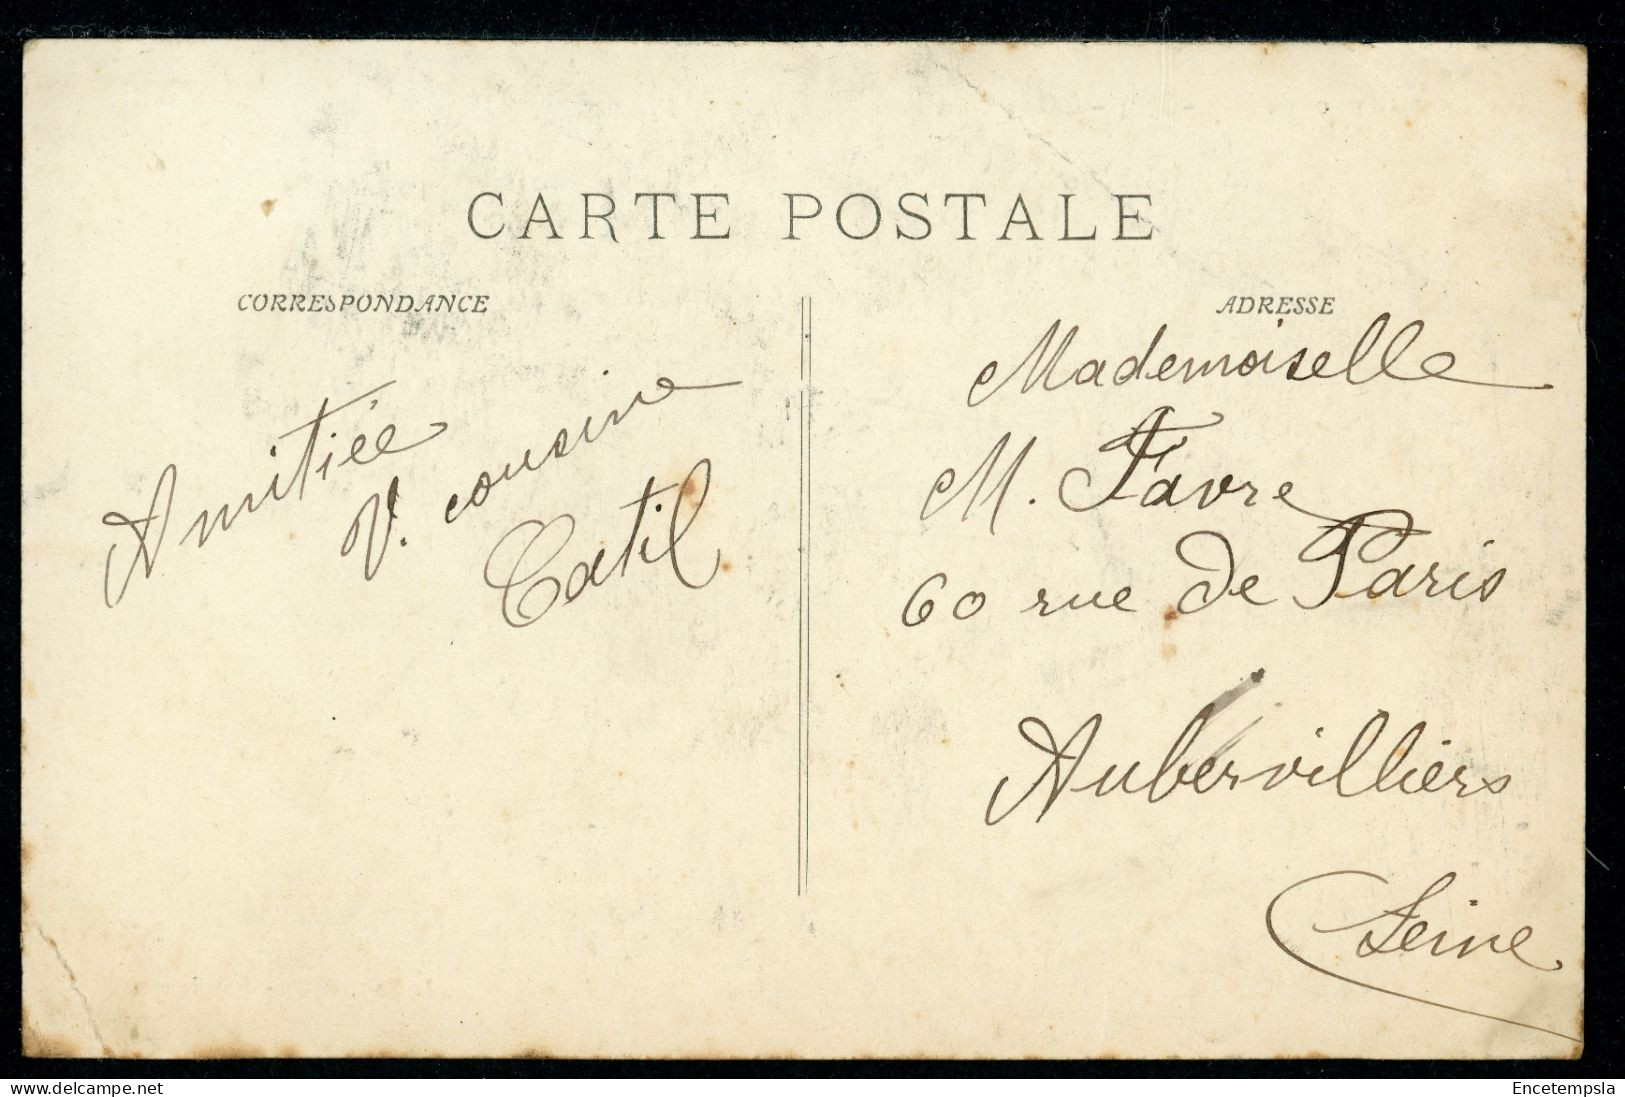 CARTE POSTALE
CORRESPONDANCE
ADRESSE
Amitiée
V. cousine
Catil
Mademoiselle
M. Favre
60 rue de Paris
Aubervilliers
Seine
www.delcampe.net
Encetempsla